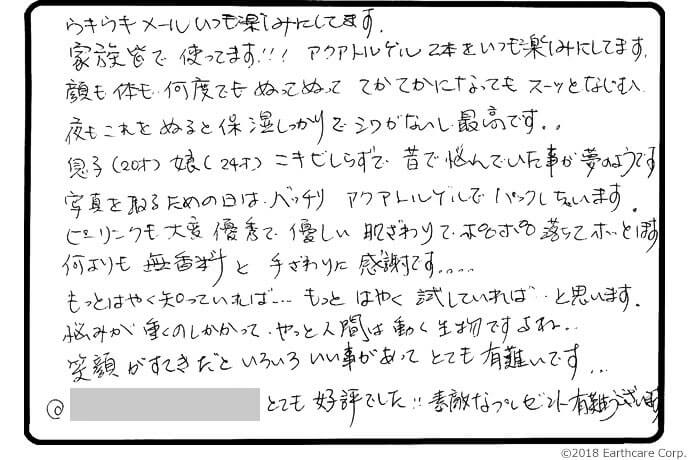 ウキウキメールいつも楽しみにしてます。
家族皆で使ってます!!! アクアトルゲル2本をいつも楽しみにしてます。
顔も体も何度でもぬってぬって てかてかになっても スーッとなじむ、
夜もこれをぬると保湿しっかりでシワがないし最高です。。
息子(20才)娘(24才)ニキビしらずで、昔で悩んでいた事が夢のようです
写真を取るための日は、バッチリ アクアトルゲルでパックしちゃいます。
ピーリングも大変優秀で、優しい肌ざわりでポロポロ落ちてホッとします
何よりも無香料と手ざわりに感謝です....
もっとはやく知っていれば... もっとはやく試していれば..と思います。
悩みが重くのしかかって、やっと人間は動く生物ですよね..
笑顔がすてきだといろいろいい事があって とても有難いです...
@ とても好評でした!! 素敵なプレゼント有難うございます
©2018 Earthcare Corp.